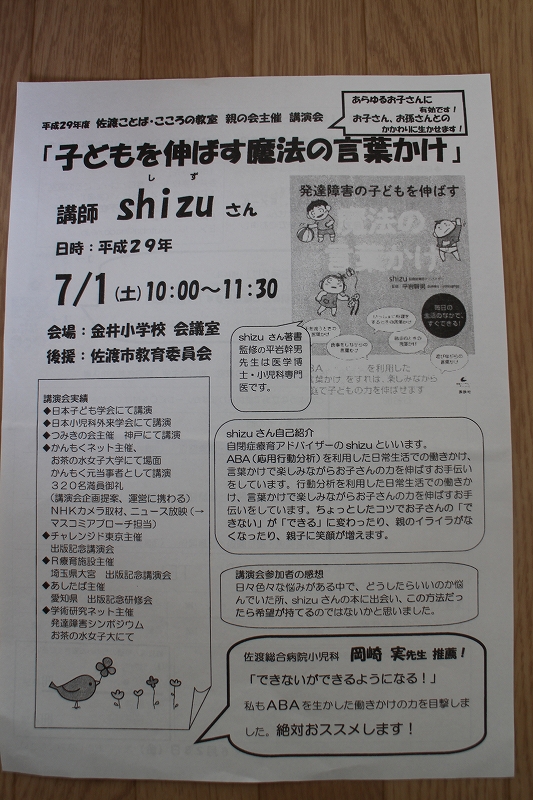 平成29年度 佐渡ことば・こころの教室 親の会主催 講演会
あらゆるお子さんに
有効です！
お子さん、お孫さんとの
かかわりに生かせます！
「子どもを伸ばす魔法の言葉かけ」
しず
講師 shizu さん
日時：平成29年
7/1(土)10:00～11:30
会場：金井小学校 会議室
後援：佐渡市教育委員会
発達障害の子どもを伸ばす
魔法の
言葉かけ
shizu
平岩幹男
毎日の
生活のなかで、
すぐできる！
ABA を利用した
言葉かけをすれば、楽しみながら
庭で子どもの力を伸ばせます
講談社
shizu さん著書
監修の平岩幹男
先生は医学博
士・小児科専門
医です。
講演会実績
◆日本子ども学会にて講演
◆日本小児科外来学会にて講演
◆つみきの会主催 神戸にて講演
◆かんもくネット主催、
お茶の水女子大学にて場面
かんもく元当事者として講演
320名満員御礼
(講演会企画提案、運営に携わる)
NHKカメラ取材、ニュース放映(→
マスコミアプローチ担当)
◆チャレンジド東京主催
出版記念講演会
◆R療育施設主催
埼玉県大宮 出版記念講演会
◆あしたば主催
愛知県 出版記念研修会
◆学術研究ネット主催
発達障害シンポジウム
お茶の水女子大にて
shizu さん自己紹介
自閉症療育アドバイザーの shizu といいます。
ABA(応用行動分析)を利用した日常生活での働きかけ、
言葉かけで楽しみながらお子さんの力を伸ばすお手伝い
をしています。行動分析を利用した日常生活での働きか
け、言葉かけで楽しみながらお子さんの力を伸ばすお手
伝いをしています。ちょっとしたコツでお子さんの「で
きない」が「できる」に変わったり、親のイライラがな
くなったり、親子に笑顔が増えます。
講演会参加者の感想
日々色々な悩みがある中で、どうしたらいいのか悩
んでいた所、shizu さんの本に出会い、この方法だった
ら希望が持てるのではないかと思いました。
佐渡総合病院小児科 岡崎 実先生 推薦！
「できないができるようになる！」
私もABAを生かした働きかけの力を目撃しま
した。絶対おススメします！